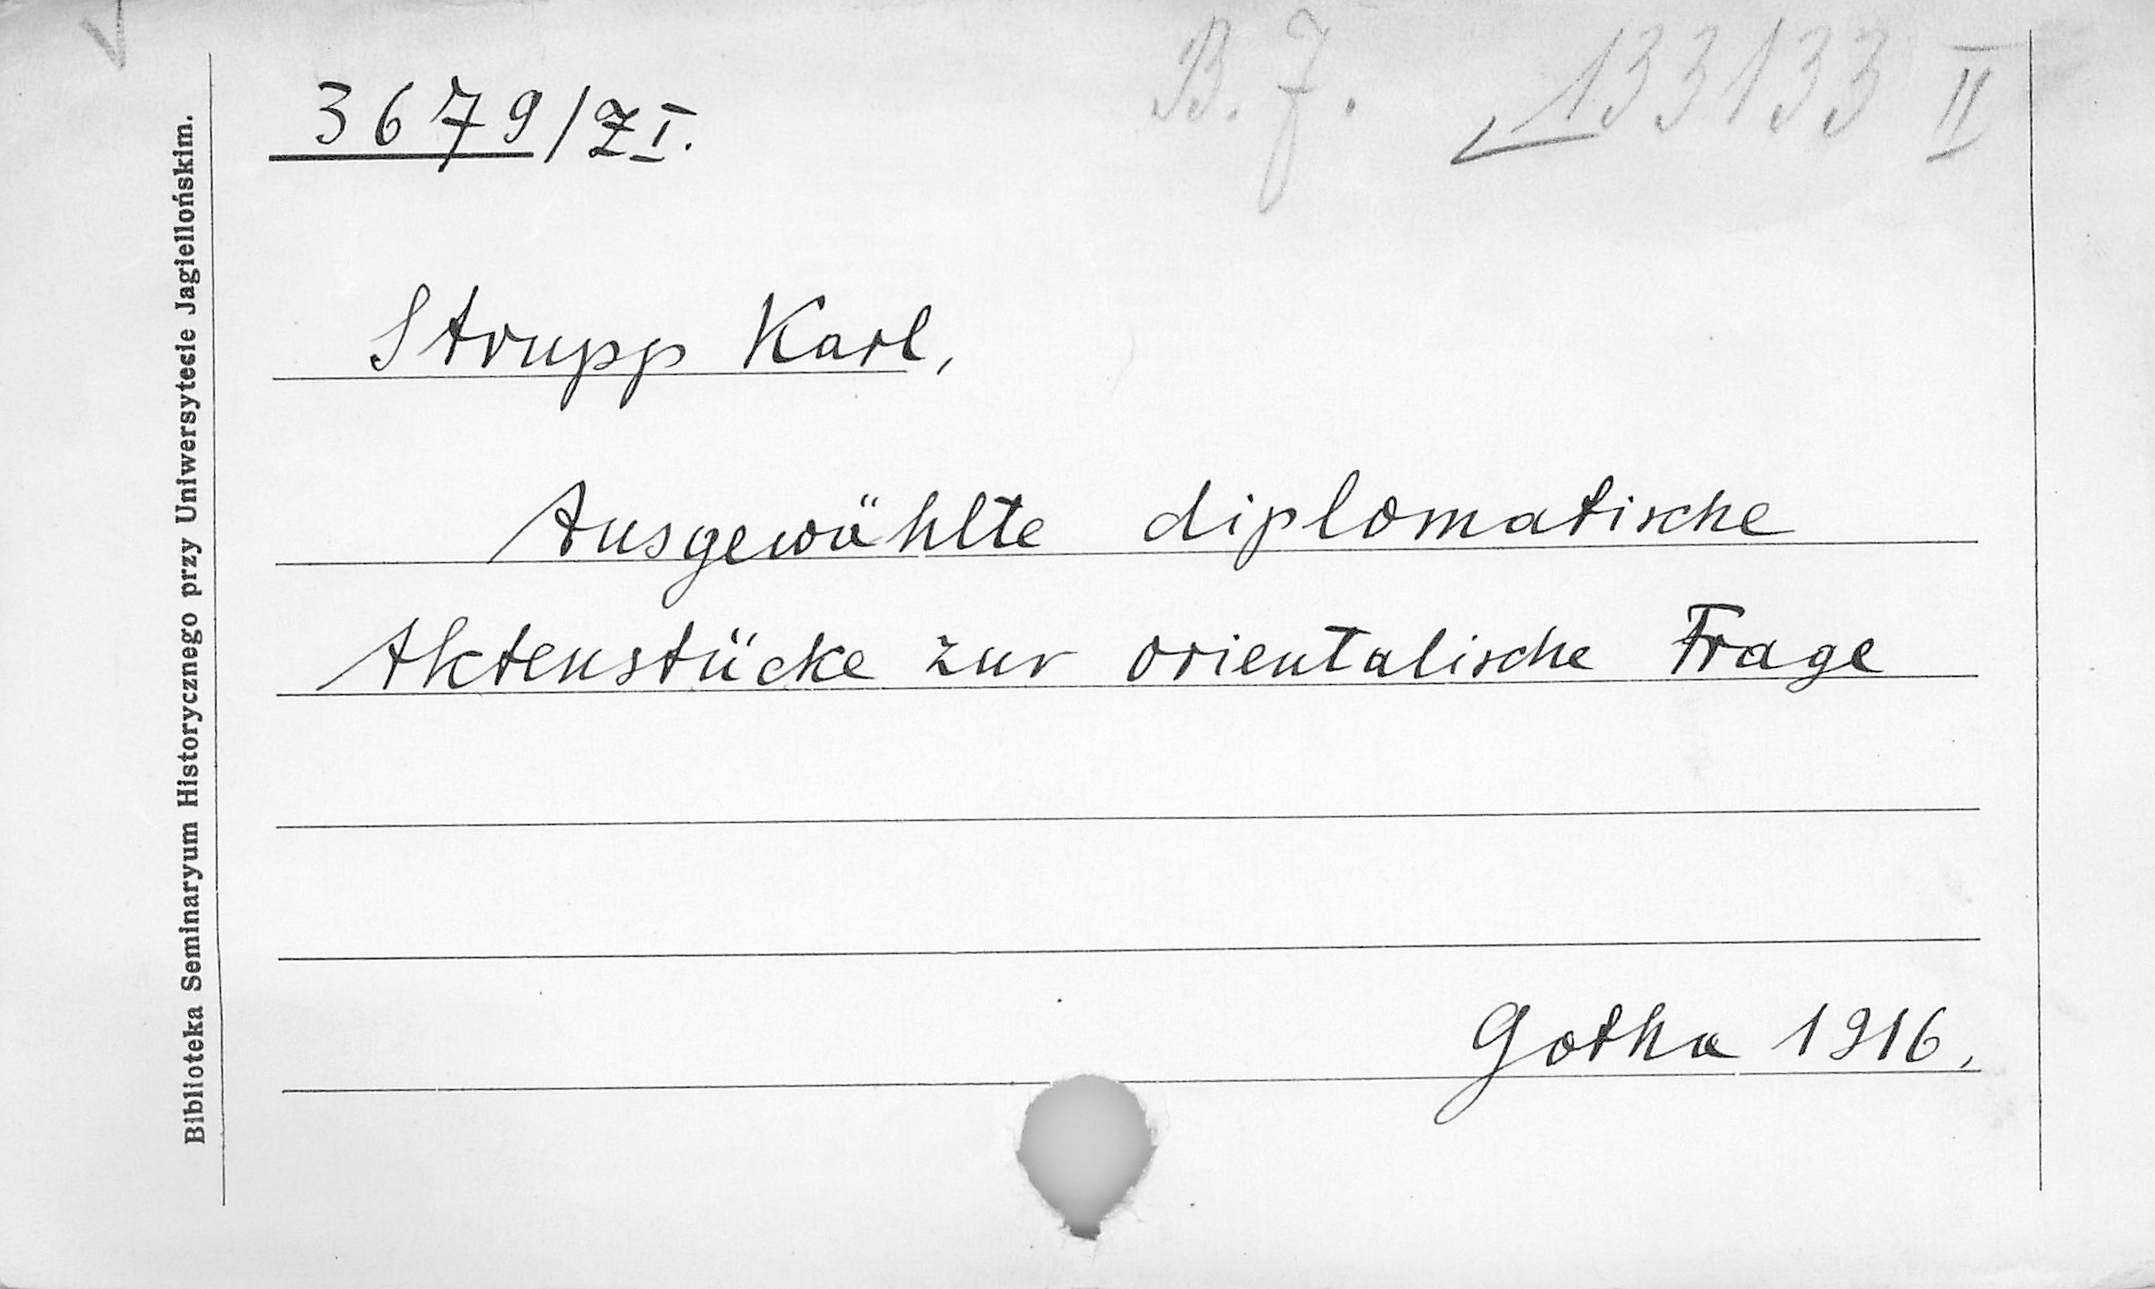 3679/ZI.
B. J. 133133 II
Strupp Karl,
Ausgewählte diplomatische
Aktenstücke zur orientalische Frage
Gotha 1916,
Biblioteka Seminaryum Historycznego przy Uniwersytecie Jagiellońskim.